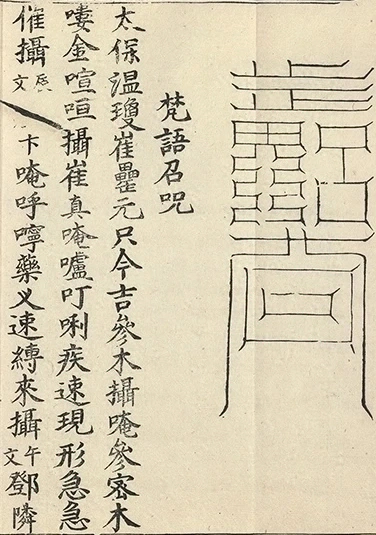 梵語召咒
太保溫瓊崔罍元只今吉參木攝唵參密木
嘍金喧咺攝崔真唵嚧叮唎疾速現形急急
催攝辰文卞唵呼嚀藥义速縛來攝午文鄧隣